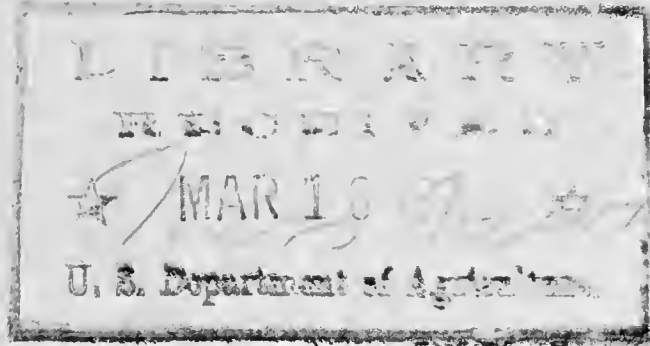 LIBRARY
RECEIVED
★ MAR 1 ★
U. S. Department of Agriculture